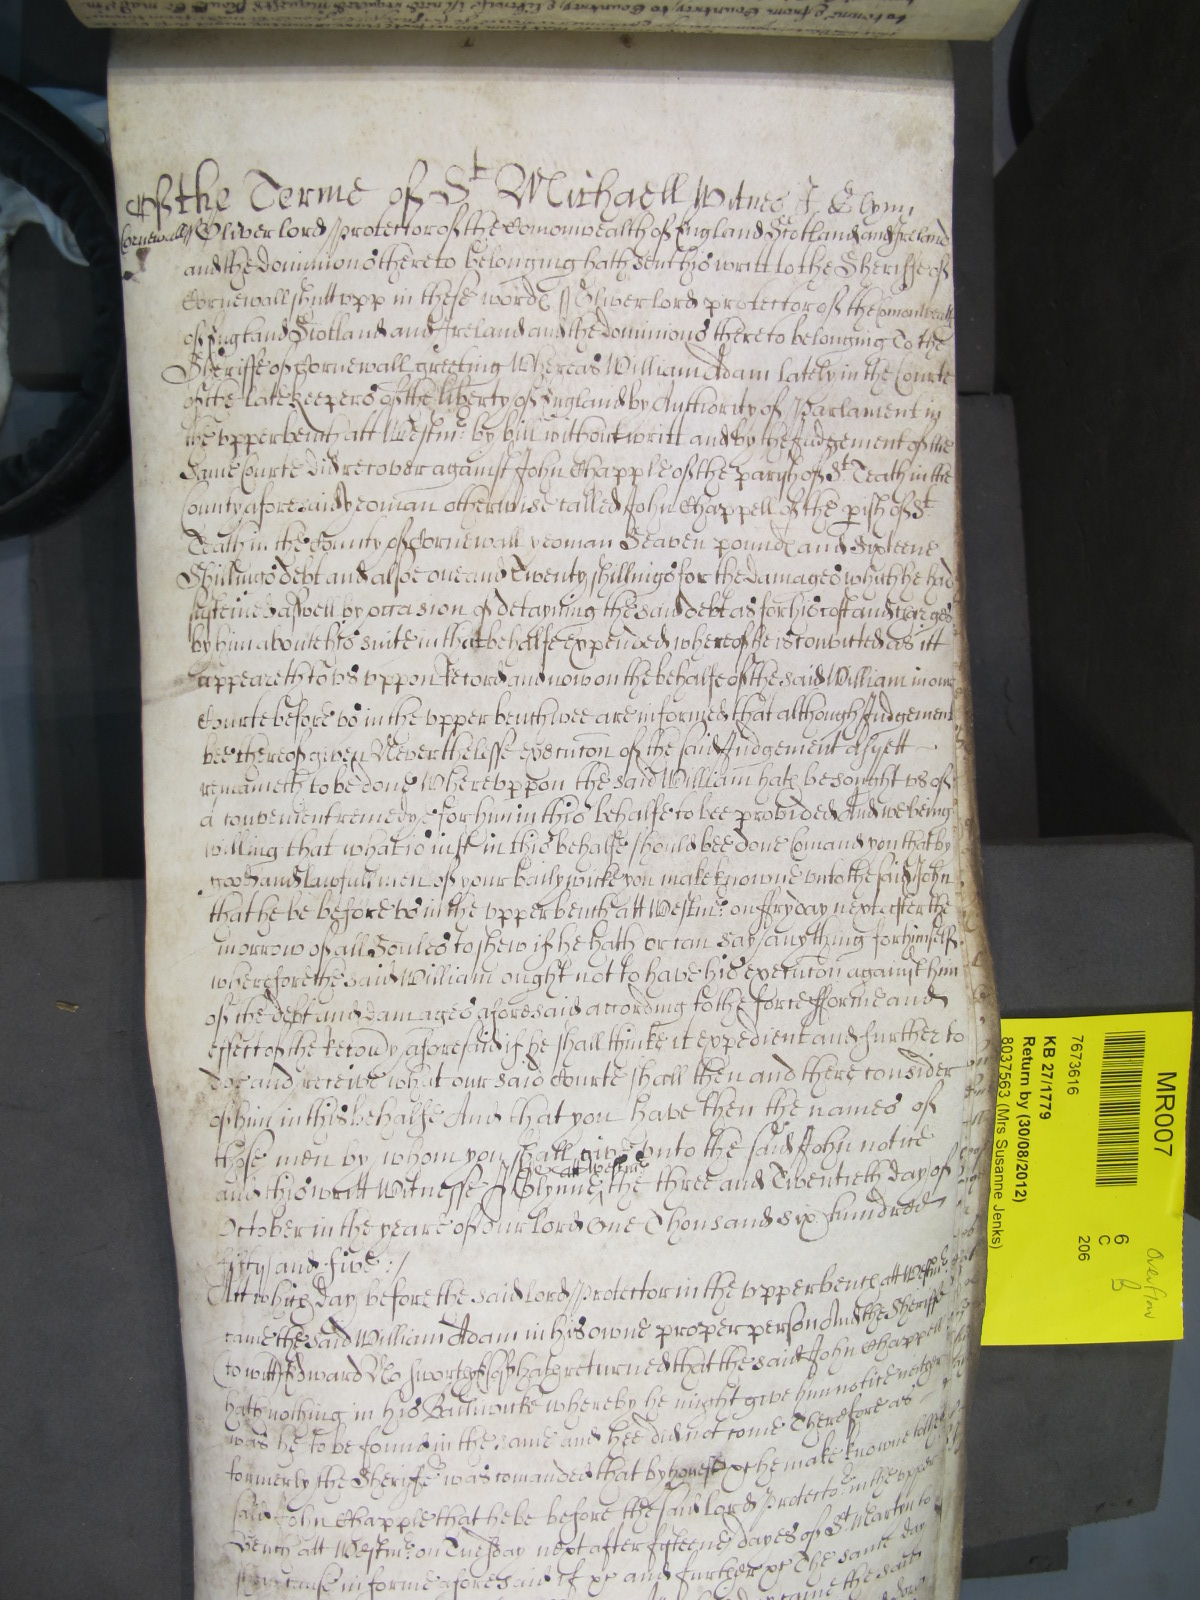 Of the Terme of St Michaell Witnes J Glynn
Cornewall Oliver lord protector of the Comonwealth of England Scotland and Ireland
and the dominions thereto belonging hath sent his writt to the Sheriffe of
Cornewall shutt upp in these words Oliver lord protector of the Comonwealth
of England Scotland and Ireland and the dominions thereto belonging To the
Sheriffe of Cornewall greeting Whereas William Adam lately in the Courte
of the late keepers of the liberty of England by Authority of Parlament in
the upper bench att Westmr by bill without writt and by the Judgement of the
same Courte did recover against John Chapple of the parish of St Teath in the
County aforesaid yeoman otherwise called John Chappell of the pish of St
Teath in the County of Cornewall yeoman Seaven pounds and Sixteene
Shillings debt and alsoe one and Twenty shillings for the damages which he had
susteined aswell by occasion of detayning the said debt as for his cost and charges
by him about his suite in that behalfe expended whereof he is convicted as itt
appeareth to us uppon Record and now on the behalfe of the said William in our
Courte before us in the upper bench wee are informed that although Judgement
bee thereof given Neverthelesse execucon of the said Judgement as yett
remaineth to be done Whereuppon the said William hath besought us of
a convenient remedye for him in this behalfe to bee provided And we being
willing that what is just in this behalfe should bee done Comand you that by
good and lawfull men of your bailywicke you make knowne unto the said John
that he be before us in the upper bench att Westmr on ffryday next after the
morrow of all Soules to shew if he hath or can say anything for himself
wherefore the said William ought not to have his execucon against him
of the debt and damages aforesaid according to the force fforme and
effect of the Recovery aforesaid if he shall thinke it expedient and further to
doe and receive what our said Courte shall then and there consider
of him in this behalfe And that you have then the names of
those men by whom you shall give unto the said John notice
and this writt Witnesse J Glynne att Westmr the three and Twentieth day of
October in the yeare of our lord One Thousand six hundred
fifty and five :/
Att which day before the said lord Protector in the upper bench att Westmr
came the said William Adam in his owne proper person And the Sheriffe
to witt Edward hath returned that the said John Chappell
hath nothing in his Bailiwicke whereby he might give him notice neither
was he to be found in the same and hee did not come Therefore as
formerly the Sheriffe was comanded that by honest &c he make knowne to the
said John Chapple that he be before the said lord Protector in the upper
Bench att Westmr on Tuesday next after fifteene dayes of St Martin to
shew cause in forme aforesaid if &c and further &c The same day
came the said
MR007
7673616
KB 27/1779
Return by (30/08/2012)
8037563 (Mrs Susanne Jenks)
6
C
206
Overflow